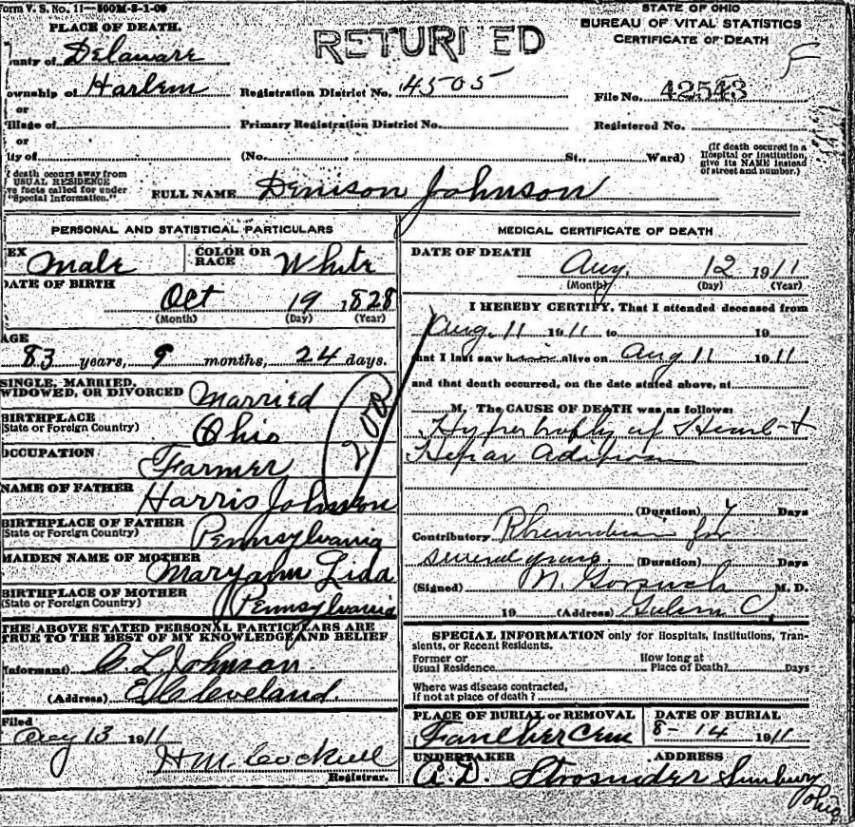 Form V. S. No. 11—500M-2-1-09
PLACE OF DEATH.
STATE OF OHIO
BUREAU OF VITAL STATISTICS
CERTIFICATE OF DEATH
RETURNED
ounty of Delaware
ownship of Harlem
Registration District No. 4505
File No. 42543
or
illage of
Primary Registration District No.
Registered No.
or
ity of
(No. St., Ward)
(If death occured in a Hospital or Institution, give its NAME instead of street and number.)
f death occurs away from USUAL RESIDENCE ve facts called for under "Special Information."
FULL NAME Denison Johnson
PERSONAL AND STATISTICAL PARTICULARS
EX Male
COLOR OR RACE White
DATE OF BIRTH
Oct 19, 1828
(Month) (Day) (Year)
AGE
83 years, 9 months, 24 days.
SINGLE, MARRIED, WIDOWED, OR DIVORCED Married
BIRTHPLACE (State or Foreign Country) Ohio
200
OCCUPATION Farmer
NAME OF FATHER Harris Johnson
BIRTHPLACE OF FATHER (State or Foreign Country) Pennsylvania
MAIDEN NAME OF MOTHER Maryann Lida
BIRTHPLACE OF MOTHER (State or Foreign Country) Pennsylvania
THE ABOVE STATED PERSONAL PARTICULARS ARE TRUE TO THE BEST OF MY KNOWLEDGE AND BELIEF
Informant) C L Johnson
(Address) E Cleveland.
Filed
Aug 13 1911
H M. Cockrell
Registrar.
MEDICAL CERTIFICATE OF DEATH
DATE OF DEATH
Aug. 12 1911
(Month) (Day) (Year)
I HEREBY CERTIFY, That I attended deceased from
Aug. 11 1911 to 19
that I last saw him alive on Aug 11 1911
and that death occurred, on the date stated above, at
M. The CAUSE OF DEATH was as follows:
Hypertrophy of Heart &
Hepar
(Duration) 7 Days
Contributory for
several years (Duration) Days
(Signed) N. Gorsuch M. D.
19 (Address) Galena O,
SPECIAL INFORMATION only for Hospitals, Institutions, Transients, or Recent Residents.
Former or Usual Residence
How long at Place of Death? Days
Where was disease contracted, if not at place of death?
PLACE OF BURIAL or REMOVAL
Fancher Cem
DATE OF BURIAL
8-14 1911
UNDERTAKER
A. D. Strosnider
ADDRESS
Sunbury Ohio